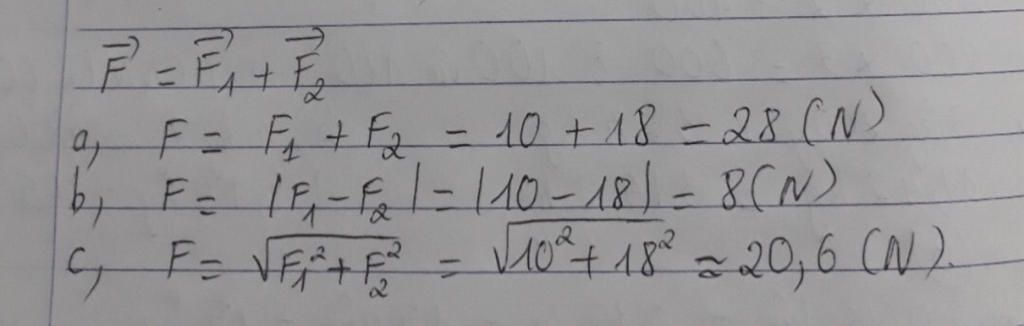 $\vec{F} = \vec{F_1} + \vec{F_2}$
a, $F = F_1 + F_2 = 10 + 18 = 28 (N)$
b, $F = |F_1 - F_2| = |10 - 18| = 8 (N)$
c, $F = \sqrt{F_1^2 + F_2^2} = \sqrt{10^2 + 18^2} \simeq 20,6 (N).$